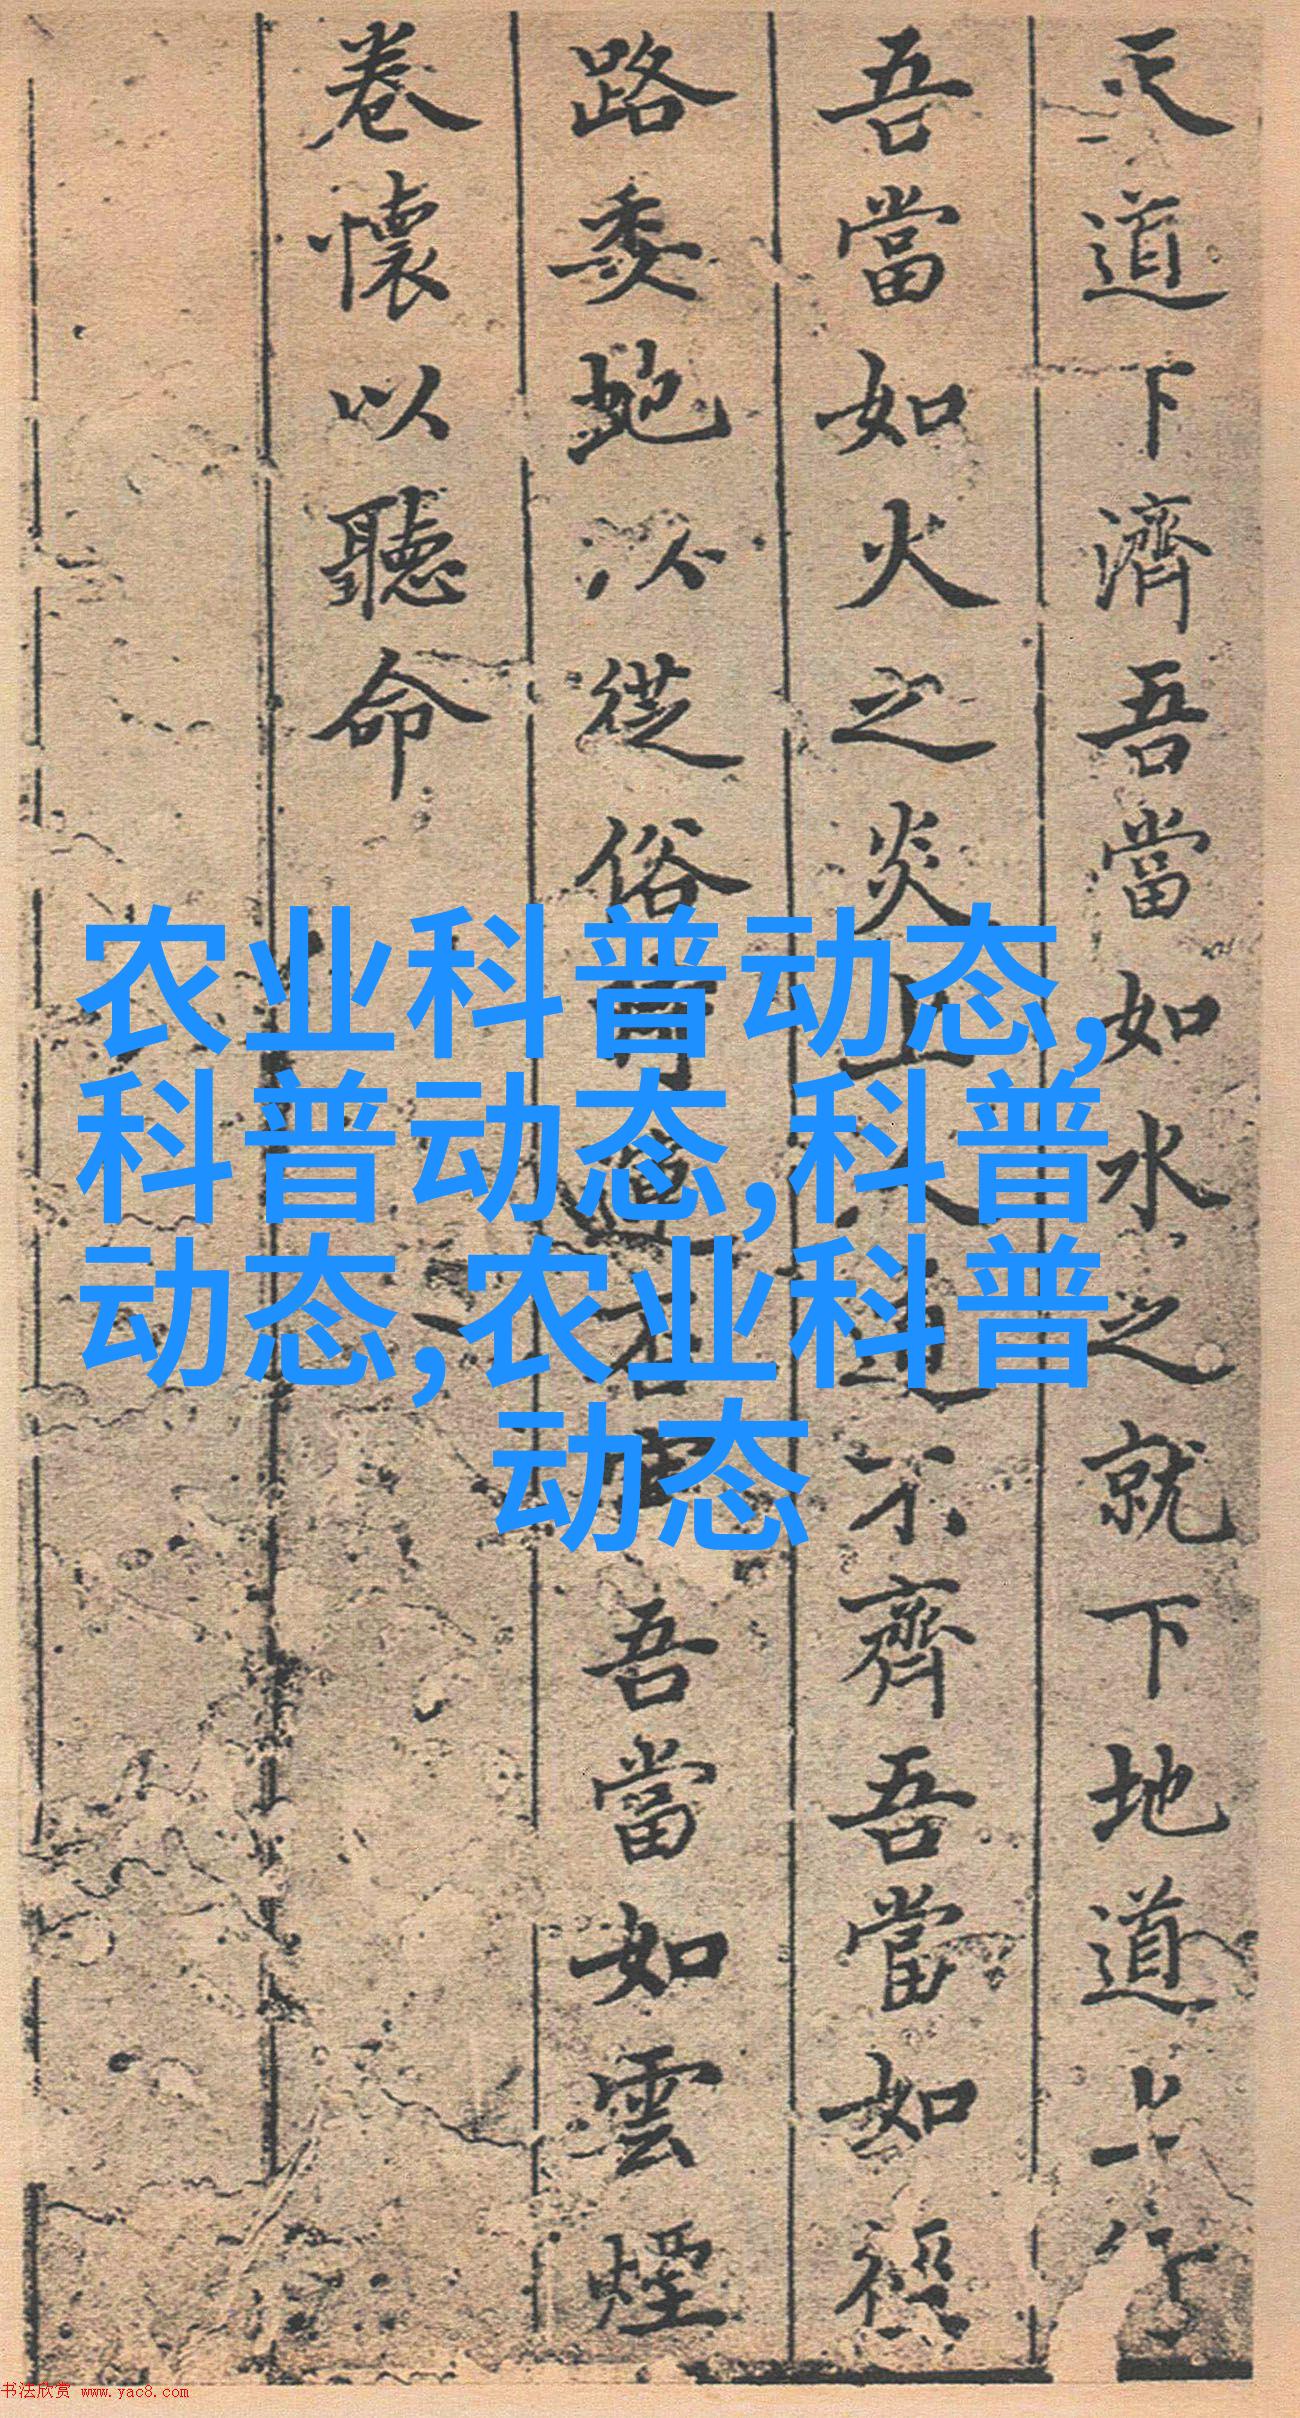 天道下濟吾當如水之就下地道上行
吾當如火之炎上人道不齊吾當如徑
路委蛇以從俗道否吾當如雲煙
卷懷以聽命
农业科普动态,
科普动态,科普
动态,农业科普
动态
书法欣赏 www.yac8.com